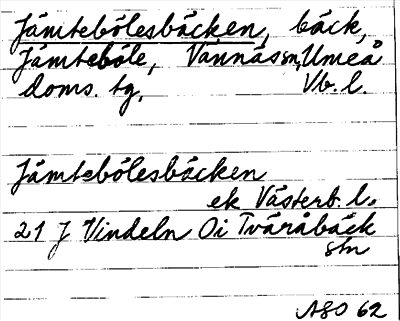 Jämtebölesbäcken, bäck,
Jämteböle, Vännäs sn, Umeå
doms. tg, Vb. l.
Jämtebölesbäcken
ek Västerb. l.
21 J Vindeln Oi Tväråbäck
stn
ASO 62